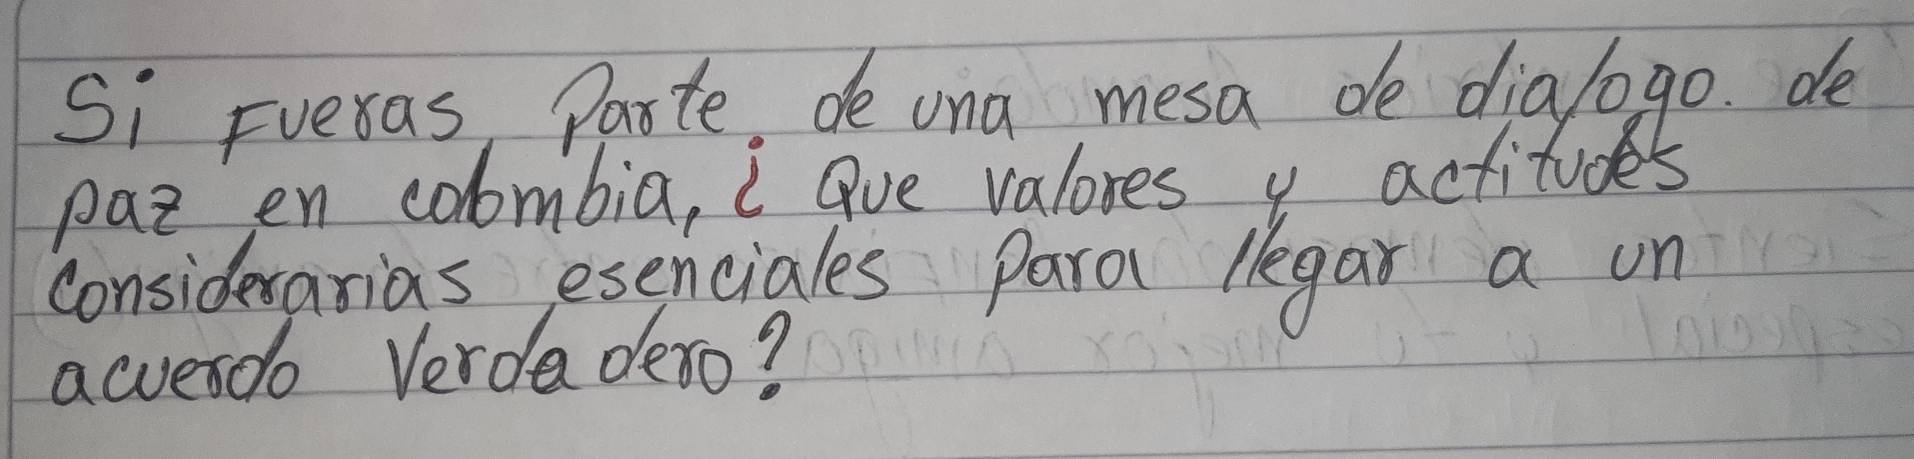 Si Fueras Parte de una mesa de dialogo. de
paz en colombia, ¿ Que valores y actitudes
considerarias esenciales Para llegar a un
acuerdo Verdadero?